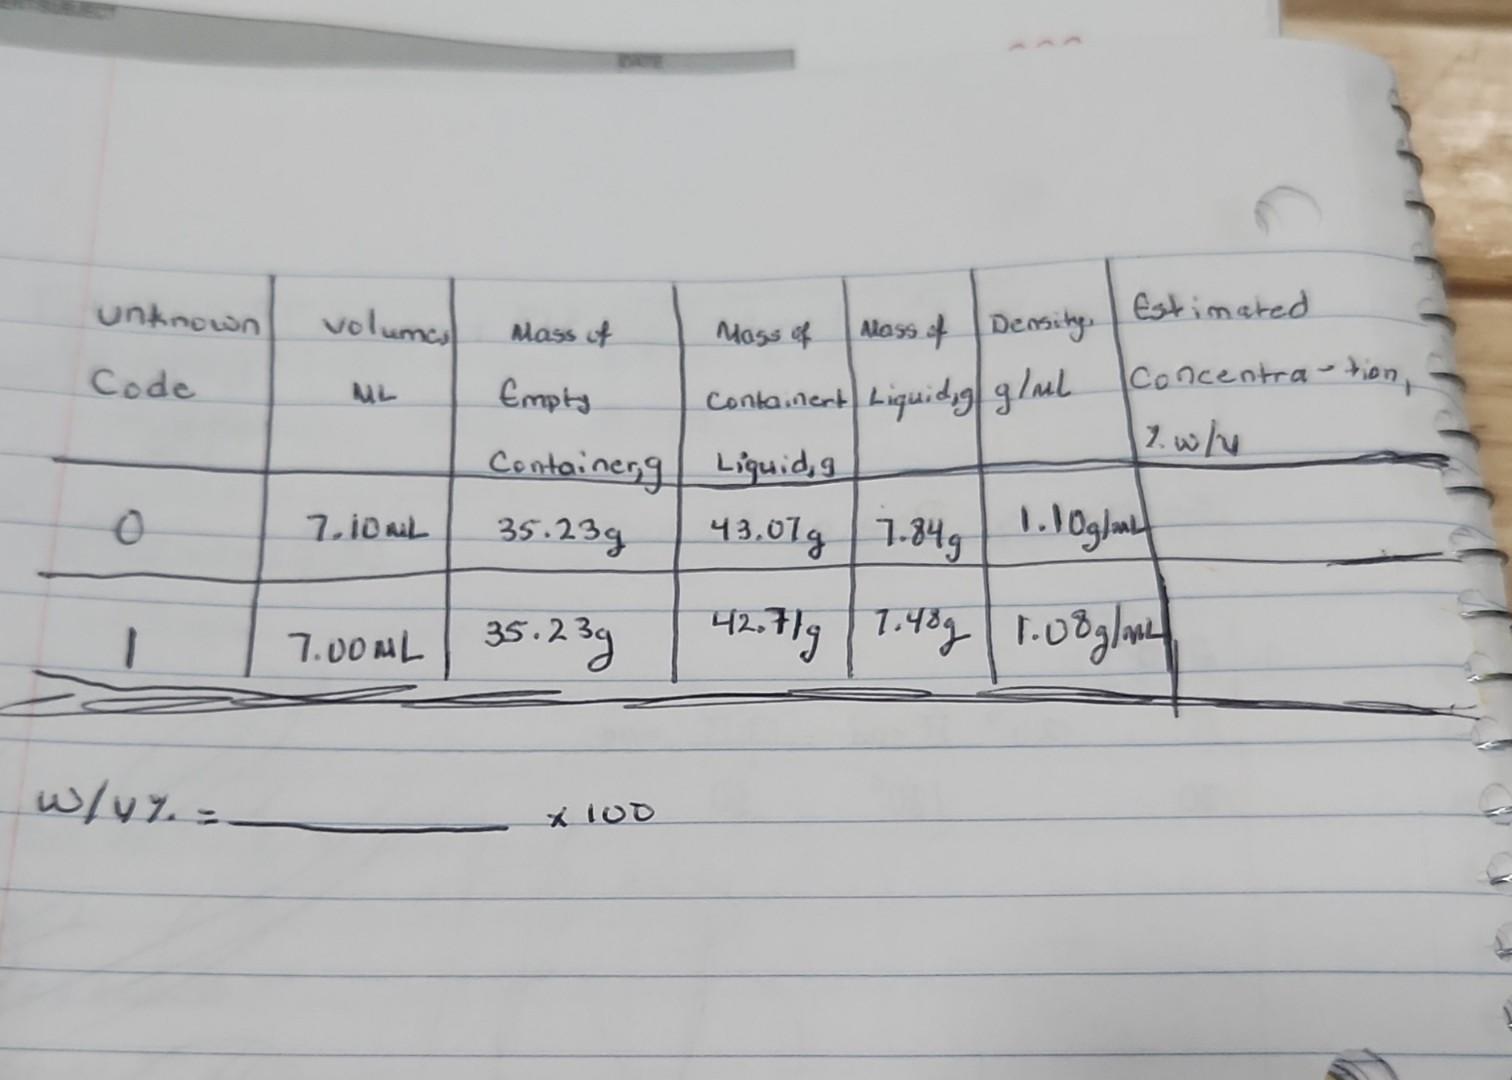 DATE
Unknown Code
Volume, mL
Mass of Empty Container, g
Mass of Container + Liquid, g
Mass of Liquid, g
Density, g/mL
Estimated Concentra-tion, % w/v
0 7.10 mL 35.23g 43.07g 7.84g 1.10g/mL
1 7.00 mL 35.23g 42.71g 7.48g 1.08g/mL
w/v % = ________ x 100